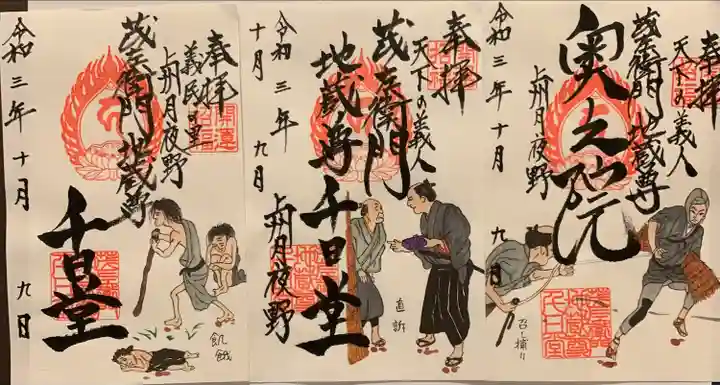 奥之院
奉拝
天下の義人
茂左衛門地蔵尊
上州月夜野
令和三年十月
九日
召し捕り
奉拝
天下の義人
茂左衛門
地蔵尊
千日堂
上州月夜野
令和三年
十月
九日
直訴
奉拝
義民の里
上州月夜野
茂左衛門地蔵尊
千日堂
令和三年十月
九日
飢餓